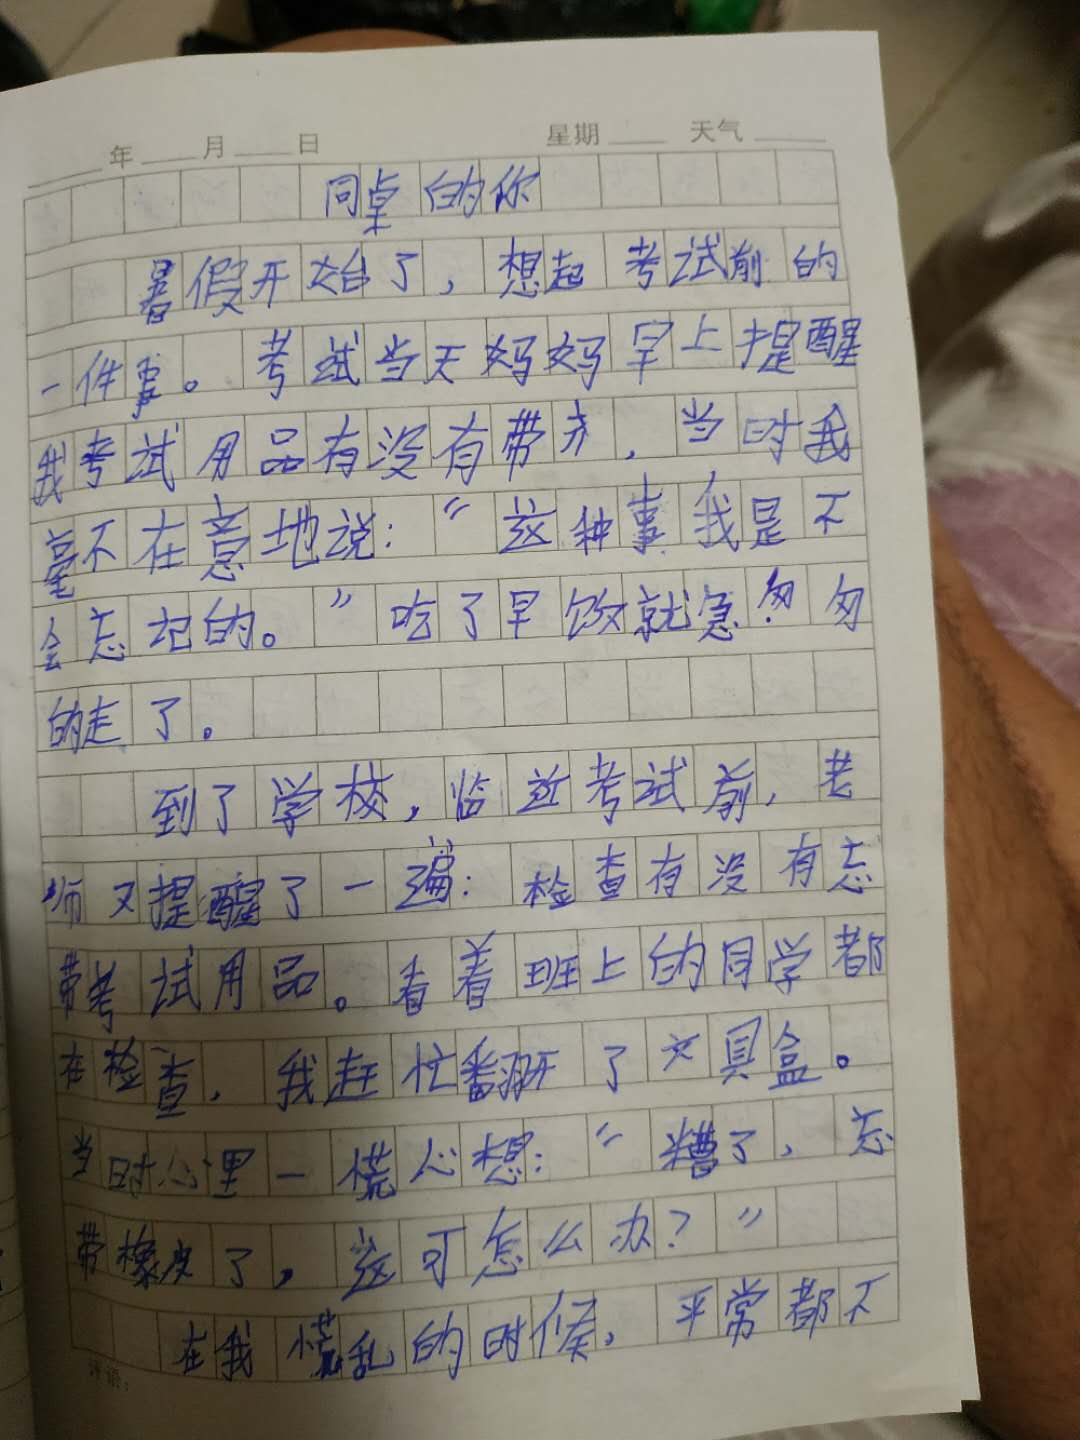 年 月 日 星期 天气
同桌的你
暑假开始了，想起考试前的
一件事。考试当天妈妈早上提醒
我考试用品有没有带齐，当时我
毫不在意地说：“这种事我是不
会忘记的。”吃了早饭就急匆匆
的走了。
到了学校，临近考试前，老
师又提醒了一遍：检查有没有忘
带考试用品。看着班上的同学都
在检查，我赶忙翻开了文具盒。
当时心里一慌心想：“糟了，忘
带橡皮了，这可怎么办？”
在我慌乱的时候，平常都不
评语：